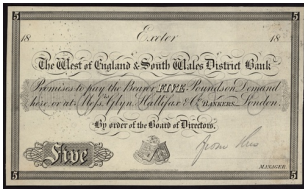 5 5
18 Exeter 18
The West of England & South Wales District Bank
Promises to pay the Bearer FIVE Pounds on Demand
here, or at Messrs Glyn, Hallifax & Co BANKERS London.
By order of the Board of Directors,
Five
MANAGER
5 5